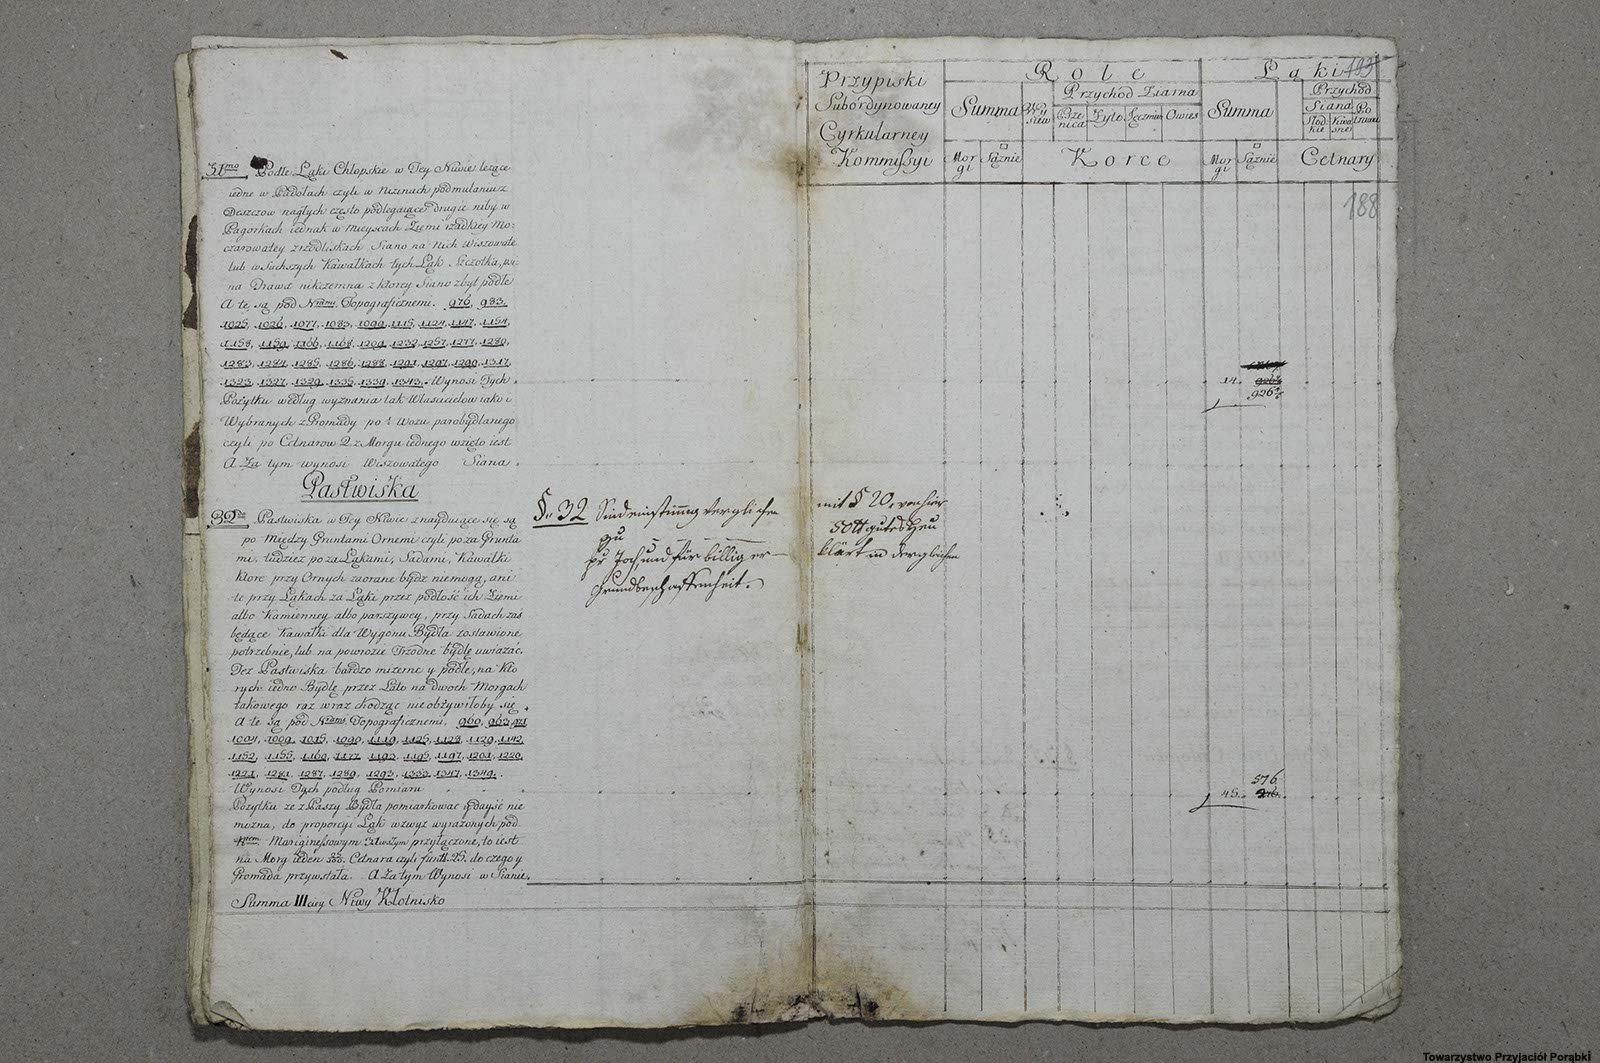 31mo Podłe Łąki Chłopskie w Tey Niwie leżące
iedne w Padołach czyli w Nizinach podmulaniu z
Deszczow nagłych często podlegaiące drugie niby w
Pagorkach iednak w mieyscach Ziemi rzadkiey Mo-
czarowatey zrzodliskach Siano na nich Wiszowate
lub w Suchszych Kawałkach tych Łąk Szczotka,
na Trawa nikczemna z ktorey Siano zbyt podłe
A te są pod Nrami Topograficznemi. 976, 983.
1025, 1026, 1077, 1083, 1099, 1115, 1124, 1147, 1154,
1158, 1159, 1166, 1168, 1209, 1232, 1257, 1277, 1280,
1283, 1284, 1285, 1286, 1288, 1291, 1297, 1299, 1317,
1323, 1327, 1329, 1335, 1339, 1343. Wynosi Tych
Pożytku według wyznania tak Właścicielow iako i
Wybranych z Gromady po 1 Wozu parobydlanego
czyli po Cetnarow 2 z Morgu iednego wzięto iest
A Za tym wynosi Wiszowatego Siana
Pastwiska
32do Pastwiska w Tey Niwie znayduiące się są
po między Gruntami Ornemi czyli poza Grunta
mi, tudzież poza Łąkami, Sadami, Kawałki
ktore przy Ornych zaorane bydź niemogą, ani
te przy Łąkach za Łąki przez podłość ich Ziemi
albo Kamienney albo parszywey, przy Sadach zaś
będące Kawałki dla Wygonu Bydła zostawione
potrzebnie, lub na powrozie Trzodne bydlę uwiązać.
Też Pastwiska bardzo mizerne y podłe, na kto
rych iedno Bydlę przez Lato na dwoch Morgach
takowego raz wraz chodząc nie obżywiłoby się
A te są pod Nrami Topograficznemi, 960, 963, 971
1004, 1009, 1015, 1090, 1119, 1125, 1128, 1129, 1142,
1152, 1155, 1160, 1177, 1193, 1195, 1197, 1201, 1220,
1221, 1281, 1287, 1289, 1293, 1333, 1347, 1349.
Wynosi Tych podług Pomiaru
Pożytku ze z Paszy Bydła pomiarkować y dayść nie
można, do proporcyi Łąk wzwyż wyrażonych pod
Nrem Marginessowym 31wszym przyłączone, to iest
na Morg ieden Cetnara czyli funt. 25. do czego y
Gromada przywstała. A Za tym Wynosi w Sianie
Summa IIIciey Niwy Kłotnisko
§. 32 Sind einstimmig verglichen mit § 20, von hier
zu sott gutes Heu
pr Joch, und für billig er- klärt in dergleichen
Grundbeschaffenheit.
Przypiski
Subordynowaney
Cyrkularney
Kommissyi
Role
Summa
Wy
siew
Przychod Ziarna
Psze
nica
Zyto
Jęczmie
Owies
Mor
gi
□
Sążnie
Korce
Łąki
193
Summa
Przychod
Siana
Słod-
kie
Kwa
sne
Po
trawu
Mor
gi
□
Sążnie
Cetnary
188
14.
926
576
45.
Towarzystwo Przyjaciół Porąbki